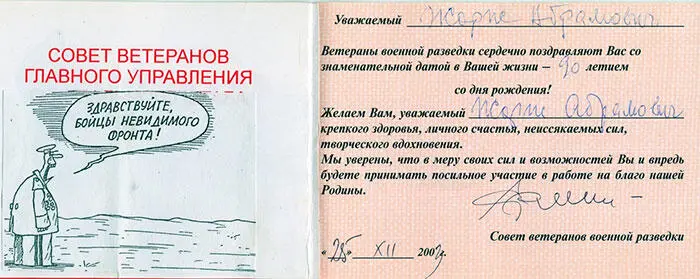 СОВЕТ ВЕТЕРАНОВ
ГЛАВНОГО УПРАВЛЕНИЯ
ЗДРАВСТВУЙТЕ,
БОЙЦЫ НЕВИДИМОГО
ФРОНТА!
Уважаемый Жорж Абрамович
Ветераны военной разведки сердечно поздравляют Вас со
знаменательной датой в Вашей жизни – 90 летием
со дня рождения!
Желаем Вам, уважаемый Жорж Абрамович
крепкого здоровья, личного счастья, неиссякаемых сил,
творческого вдохновения.
Мы уверены, что в меру своих сил и возможностей Вы и впредь
будете принимать посильное участие в работе на благо нашей
Родины.
Совет ветеранов военной разведки
«25» XII 2003